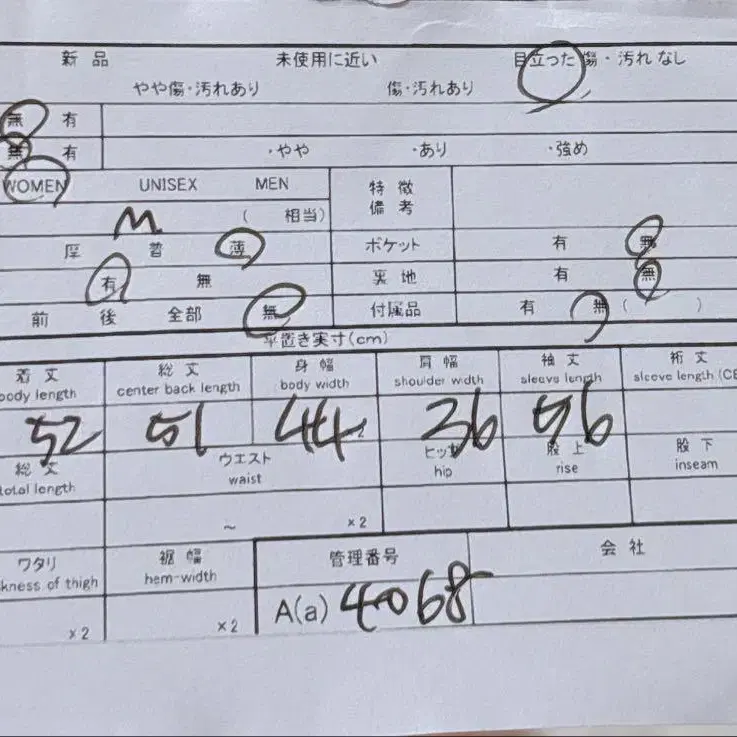 新品 未使用に近い 目立った傷・汚れなし
やや傷・汚れあり 傷・汚れあり
無 有
無 有 ・やや ・あり ・強め
WOMEN UNISEX MEN 特徴
備考
M ( 相当)
厚 普 薄 ポケット 有 無
有 無 裏地 有 無
前 後 全部 無 付属品 有 無 ( )
平置き実寸(cm)
着丈 総丈 身幅 肩幅 袖丈 裄丈
body length center back length body width shoulder width sleeve length sleeve length (CB
52 51 44 36 56
総丈 ウエスト ヒップ 股上 股下
total length waist hip rise inseam
~ ×2
ワタリ 裾幅 管理番号 会社
kness of thigh hem-width
×2 ×2 A(a) 4068